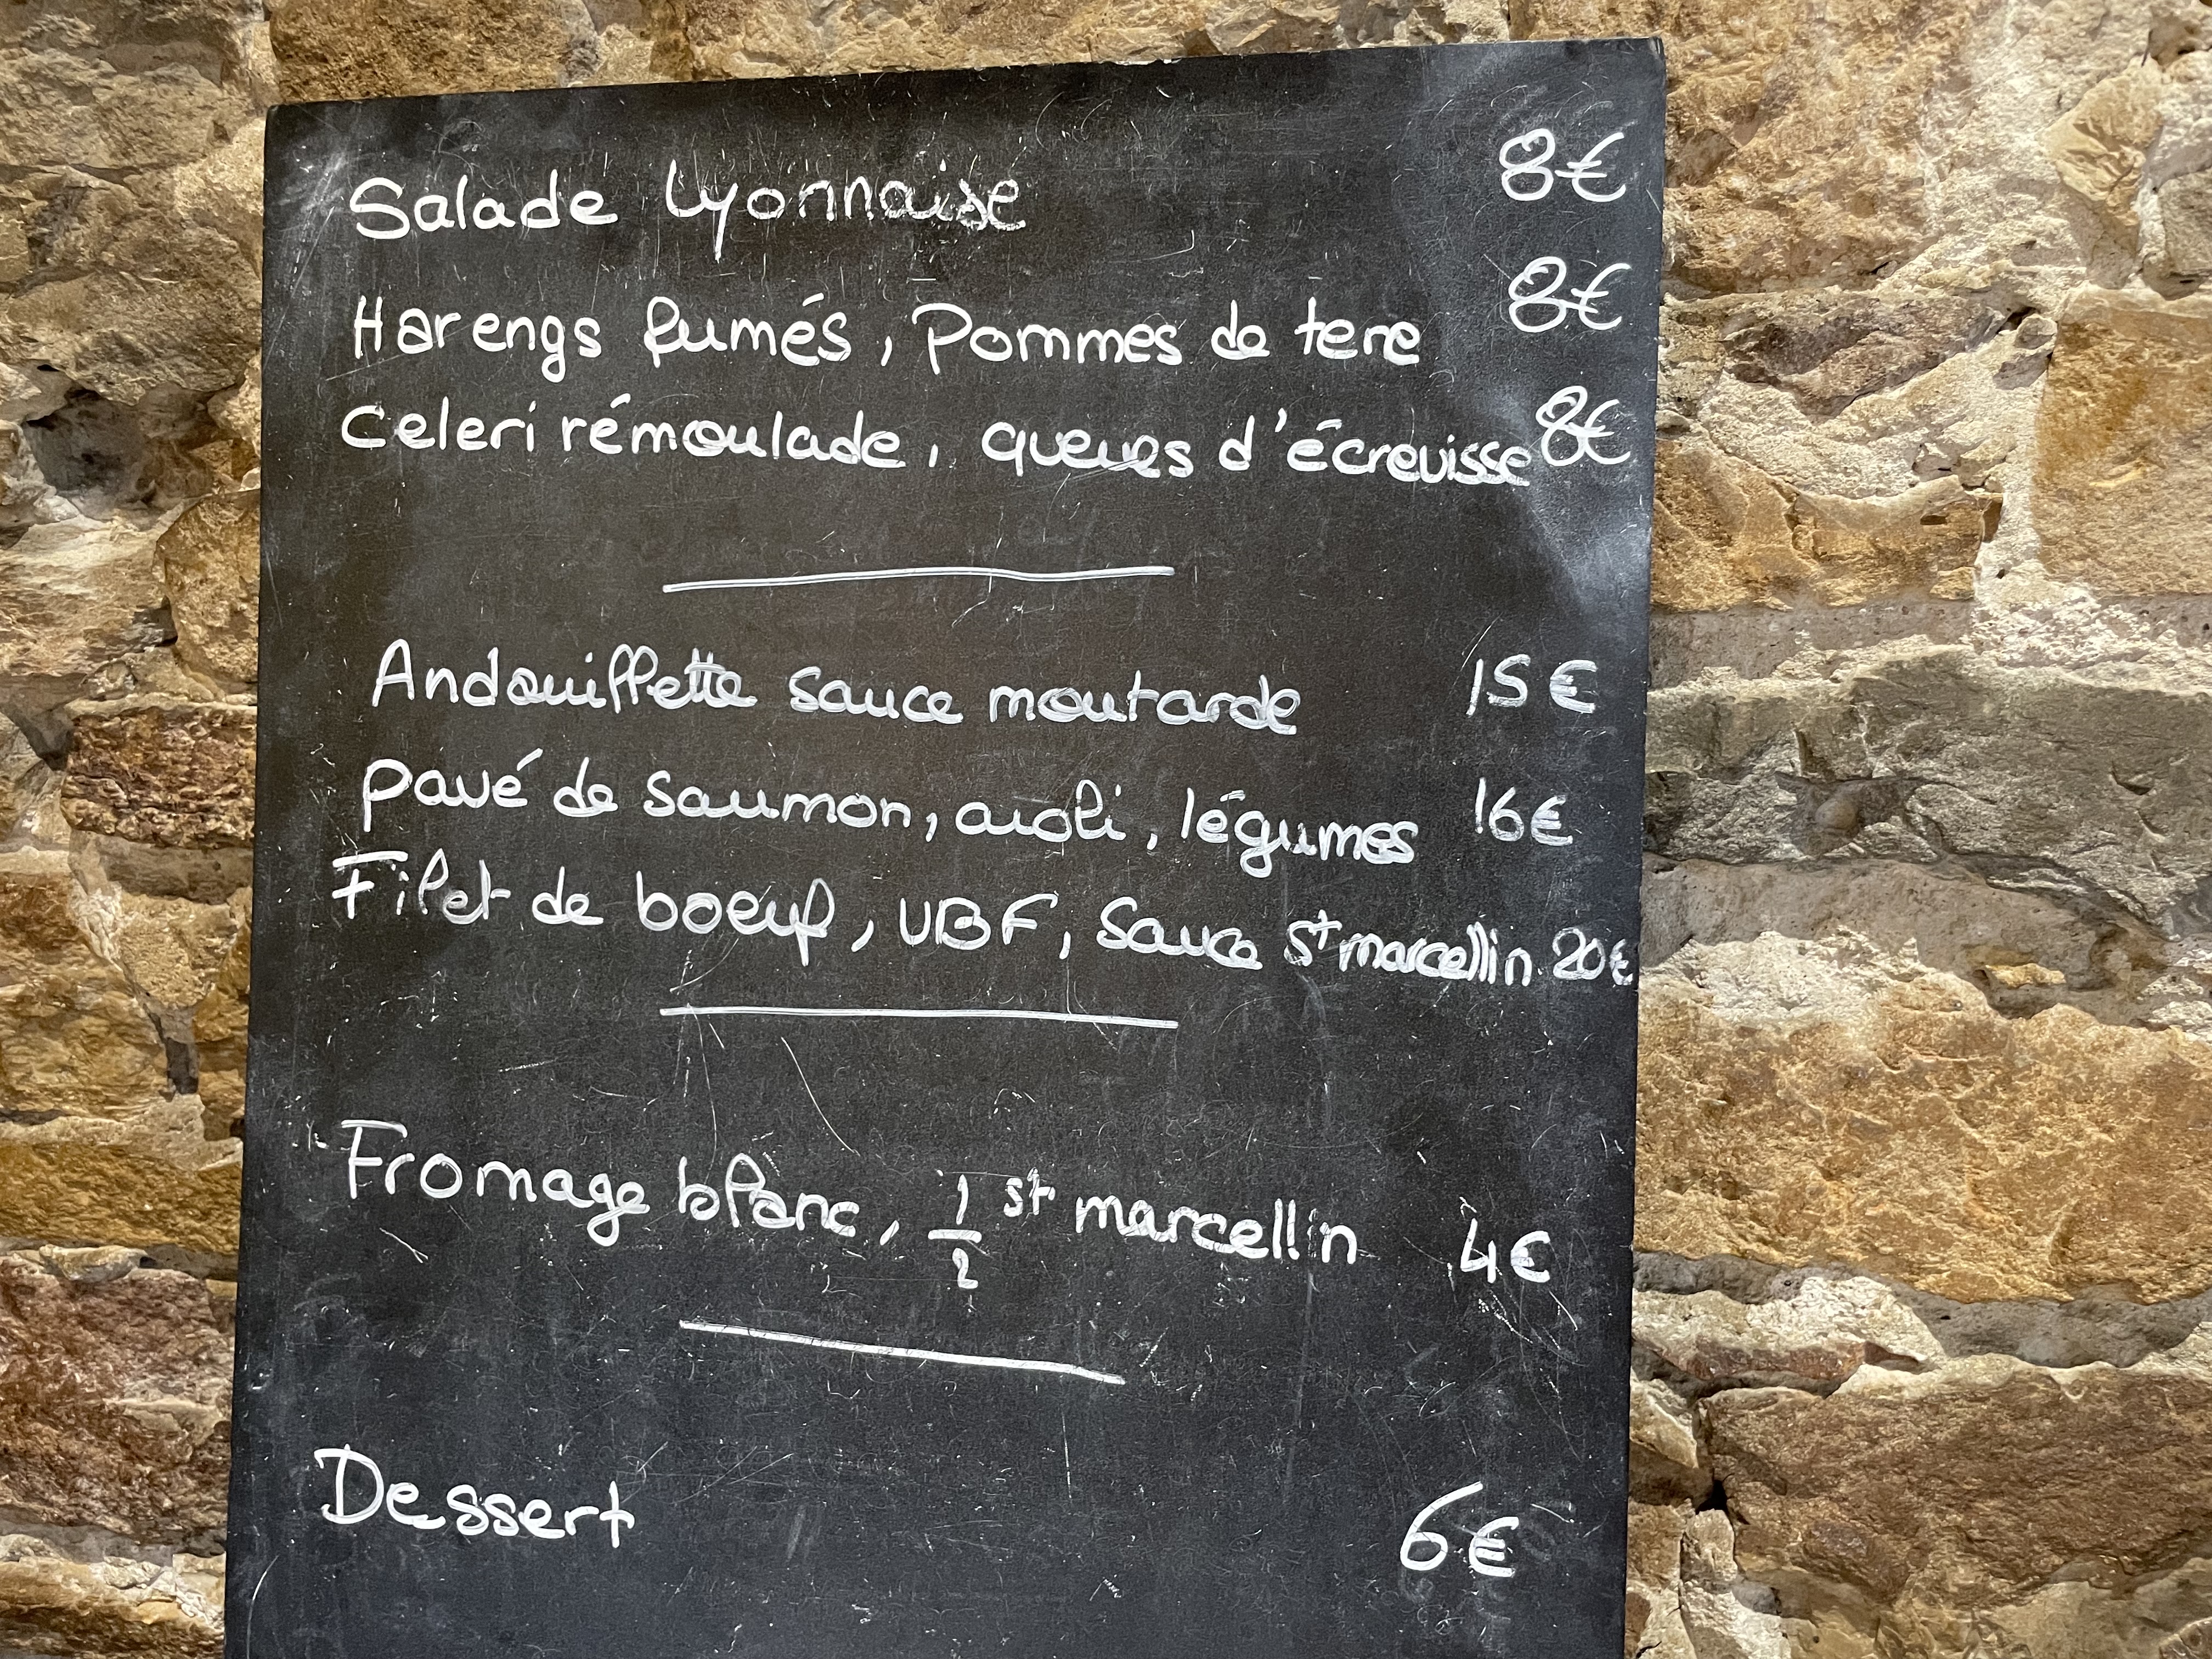 Salade Lyonnaise 8€
Harengs fumés, Pommes de terre 8€
Celeri rémoulade, queues d'écrevisse 8€
Andouillette sauce moutarde 15€
Pavé de saumon, aioli, légumes 16€
Filet de boeuf, VBF, Sauce St marcellin 20€
Fromage blanc, 1/2 st marcellin 4€
Dessert 6€